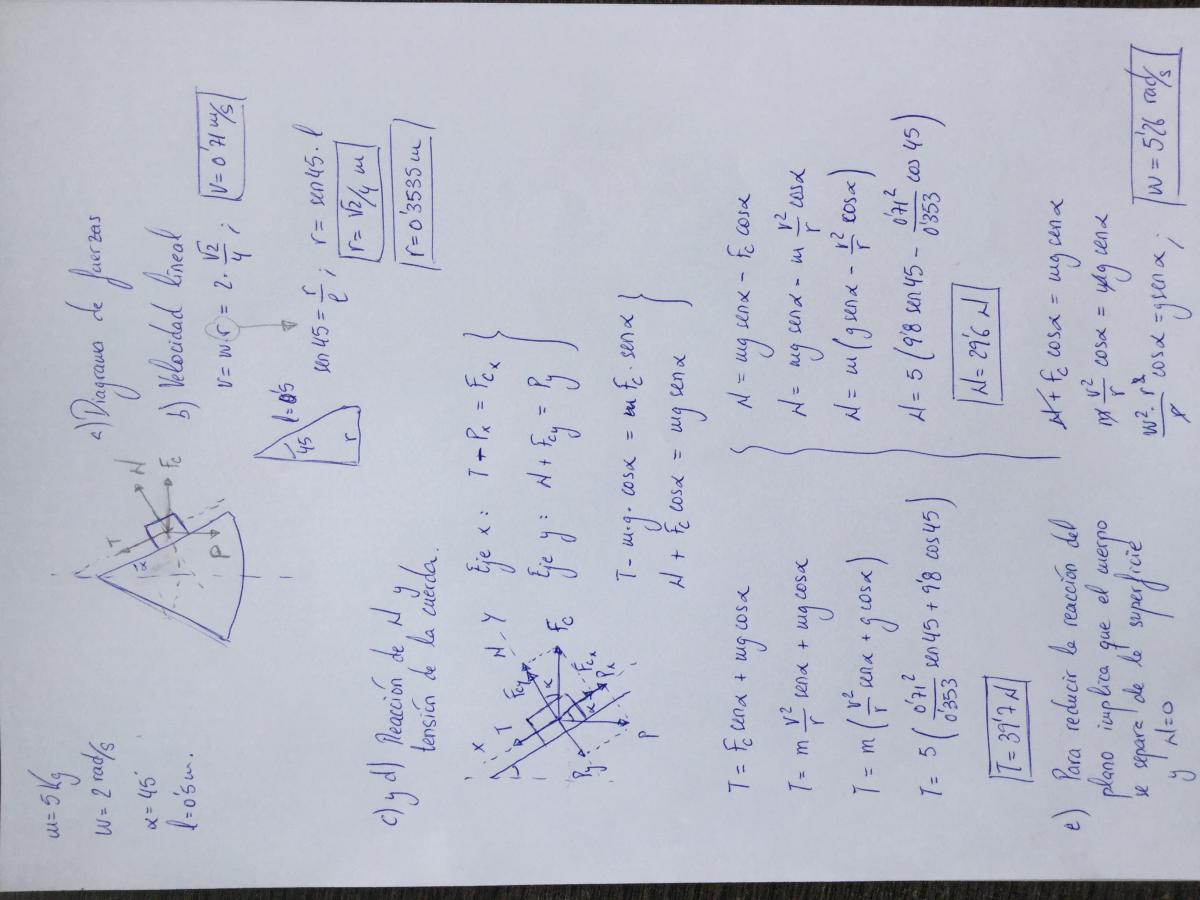 m = 5 Kg
w = 2 rad/s
α = 45°
l = 0'5 m.
α
T
N
Fc
P
a) Diagrama de fuerzas
b) Velocidad lineal
v = w r = 2 · √2/4 ; v = 0'71 m/s
45
l = 0'5
r
sen 45 = r/l ; r = sen 45 · l
r = √2/4 m
r = 0'3535 m
c) y d) Reacción de N y
tensión de la cuerda.
X
T
N
Y
Fcy
Fc
α
Fcx
Px
α
Py
P
Eje x: T - Px = Fcx
Eje y: N + Fcy = Py
T - m·g·cosα = Fc·senα
N + Fc cosα = mg senα
T = Fc senα + mg cosα
T = m v²/r senα + mg cosα
T = m (v²/r senα + g cosα)
T = 5 (0'71²/0'353 sen45 + 9'8 cos45)
T = 39'7 N
N = mg senα - Fc cosα
N = mg senα - m v²/r cosα
N = m (g senα - v²/r cosα)
N = 5 (9'8 sen45 - 0'71²/0'353 cos45)
N = 29'6 N
e) Para reducir la reacción del
plano implica que el cuerpo
se separa de la superficie
y N=0
N + Fc cosα = mg senα
m v²/r cosα = mg senα
w²·r²/r cosα = g senα ; w = 5'26 rad/s